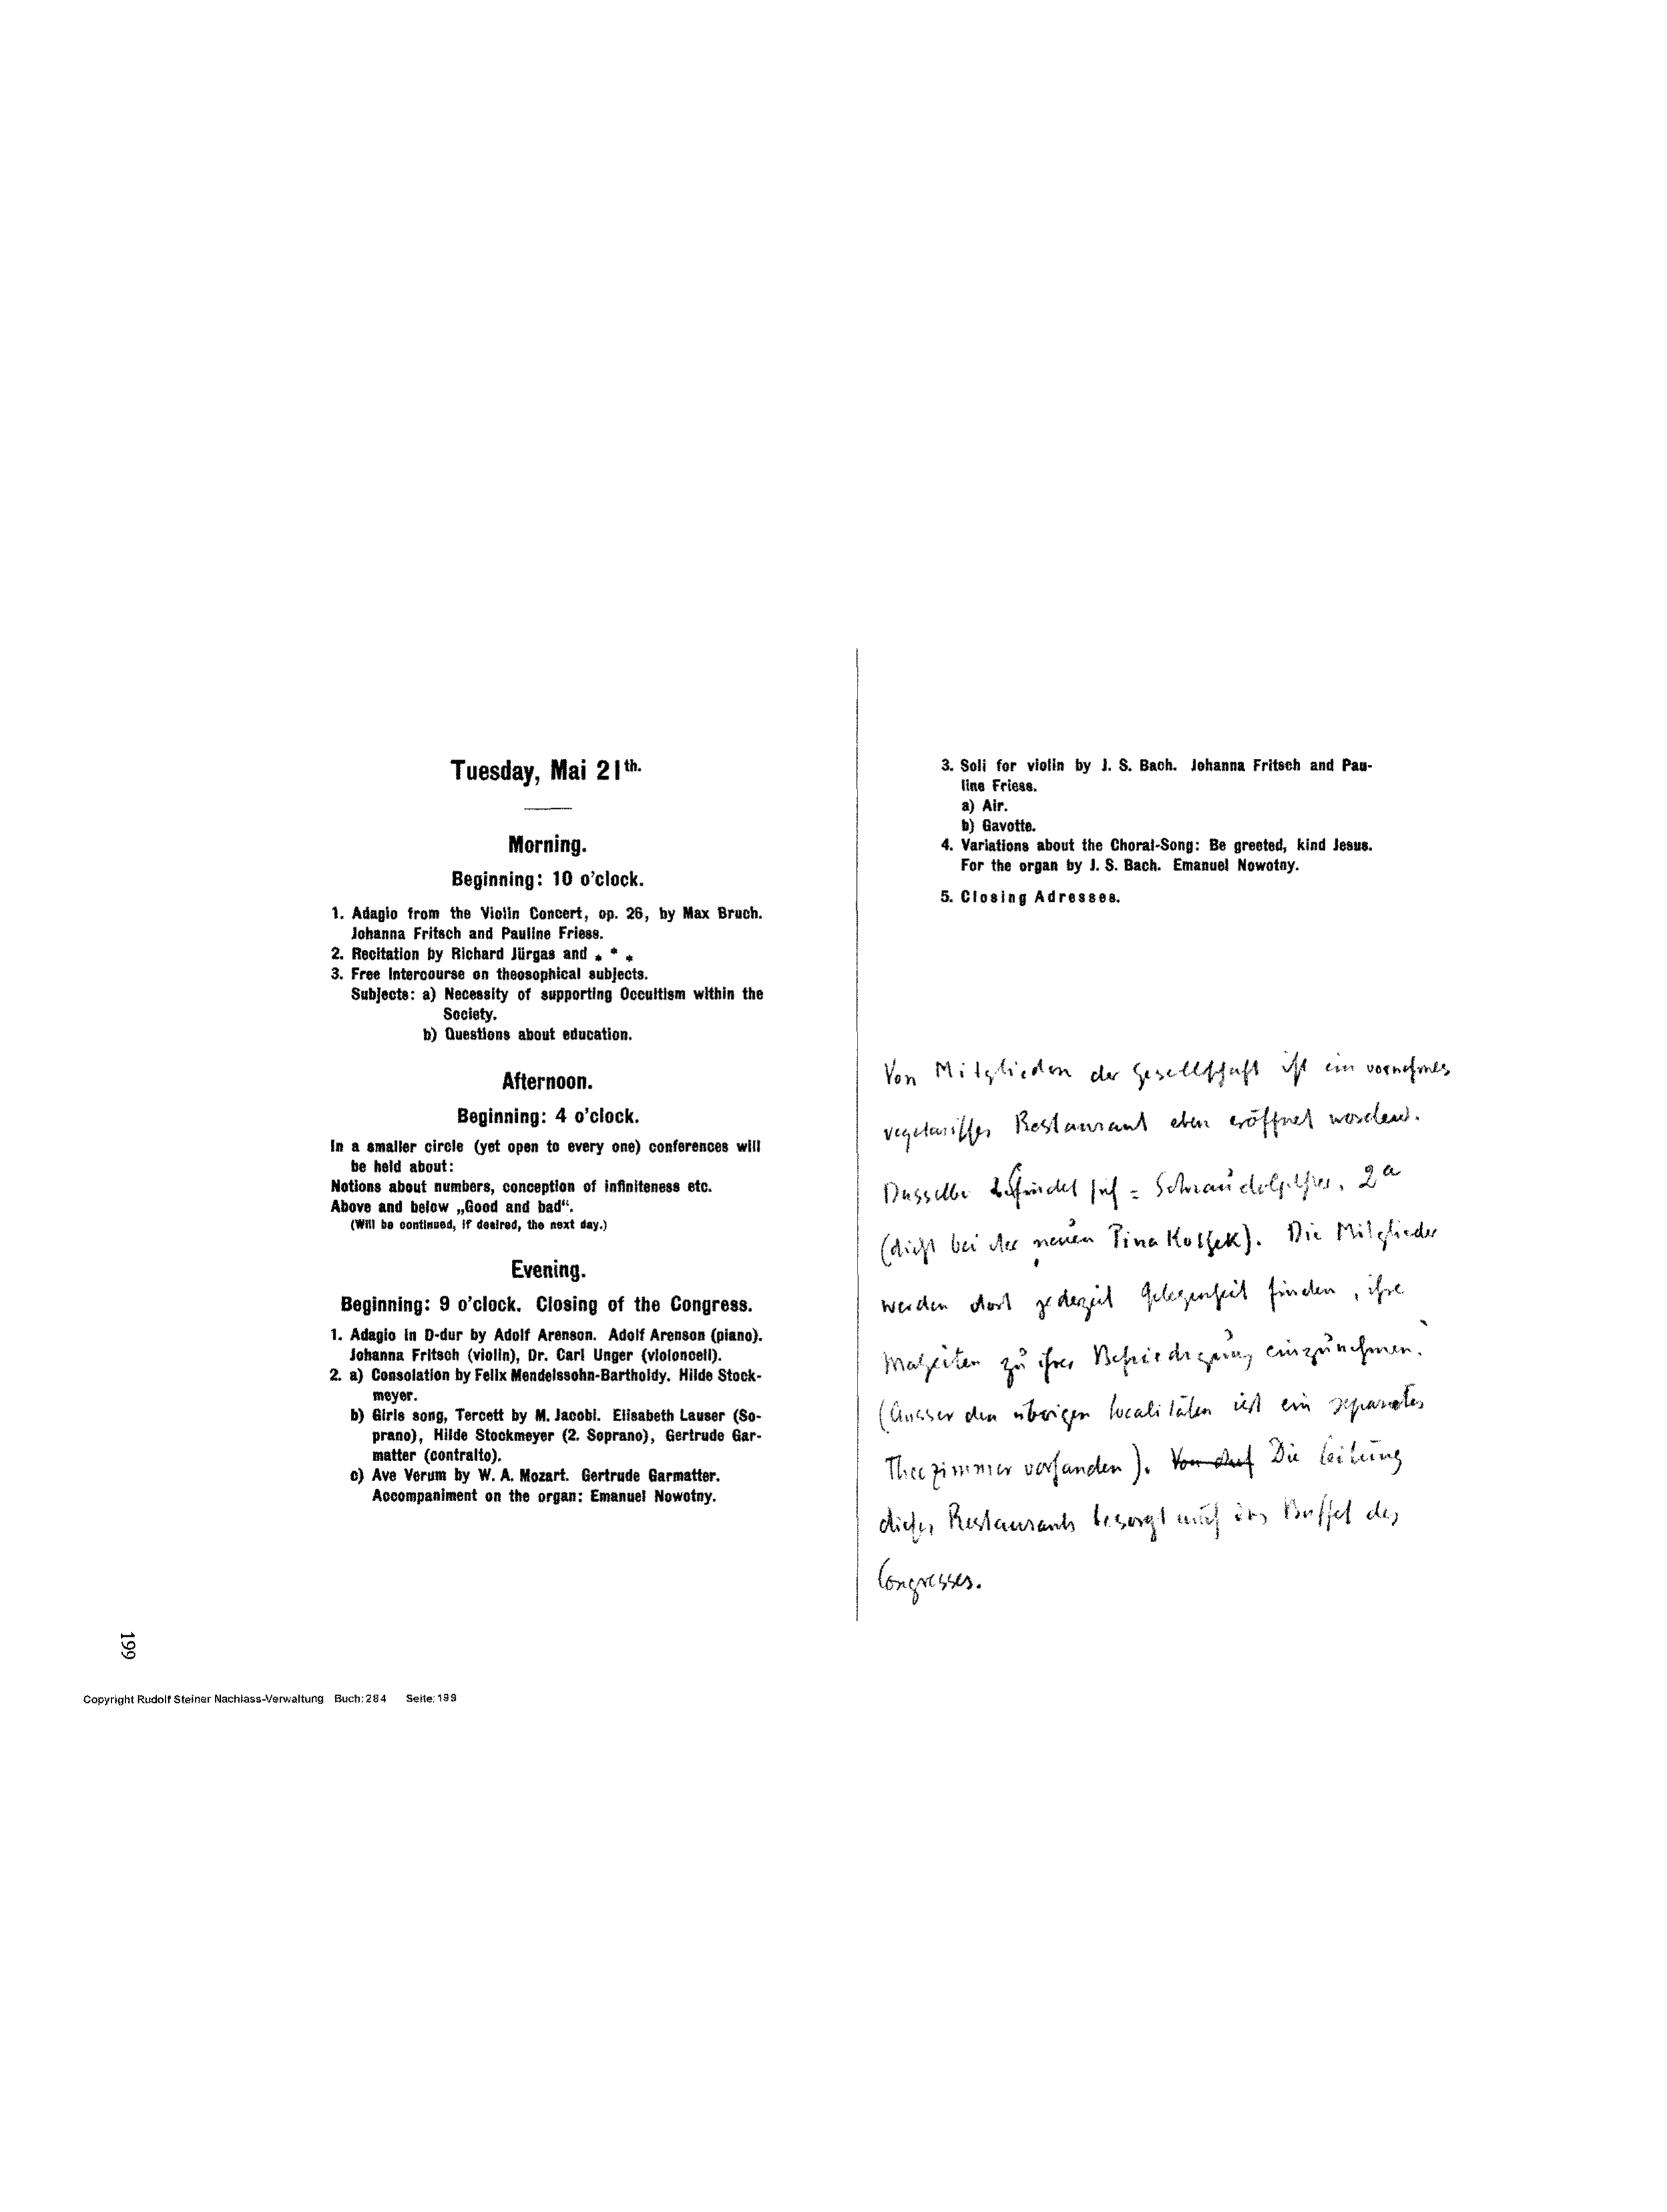 Tuesday, Mai 21th.
Morning.
Beginning: 10 o'clock.
1. Adagio from the Violin Concert, op. 26, by Max Bruch.
Johanna Fritsch and Pauline Friess.
2. Recitation by Richard Jürgas and * * *
3. Free Intercourse on theosophical subjects.
Subjects: a) Necessity of supporting Occultism within the
Society.
b) Questions about education.
Afternoon.
Beginning: 4 o'clock.
In a smaller circle (yet open to every one) conferences will
be held about:
Notions about numbers, conception of infiniteness etc.
Above and below „Good and bad“.
(Will be continued, if desired, the next day.)
Evening.
Beginning: 9 o'clock. Closing of the Congress.
1. Adagio in D-dur by Adolf Arenson. Adolf Arenson (piano).
Johanna Fritsch (violin), Dr. Carl Unger (violoncell).
2. a) Consolation by Felix Mendelssohn-Bartholdy. Hilde Stock-
meyer.
b) Girls song, Tercett by M. Jacobi. Elisabeth Lauser (So-
prano), Hilde Stockmeyer (2. Soprano), Gertrude Gar-
matter (contralto).
c) Ave Verum by W. A. Mozart. Gertrude Garmatter.
Accompaniment on the organ: Emanuel Nowotny.
3. Soli for violin by J. S. Bach. Johanna Fritsch and Pau-
line Friess.
a) Air.
b) Gavotte.
4. Variations about the Choral-Song: Be greeted, kind Jesus.
For the organ by J. S. Bach. Emanuel Nowotny.
5. Closing Adresses.
Von Mitgliedern der Gesellschaft ist ein vornehmes
vegetarisches Restaurant eben eröffnet worden.
Dasselbe befindet sich = Schraudolphstr. 2a
(dicht bei der neuen Pinakothek). Die Mitglieder
werden dort jederzeit Gelegenheit finden, ihre
Malzeiten zu ihrer Befriedigung einzunehmen.
(Ausser den übrigen Localitäten ist ein separates
Theezimmer vorhanden). Die Leitung
dieses Restaurants besorgt auch das Buffet des
Congresses.
199
Copyright Rudolf Steiner Nachlass-Verwaltung Buch: 284 Seite: 199